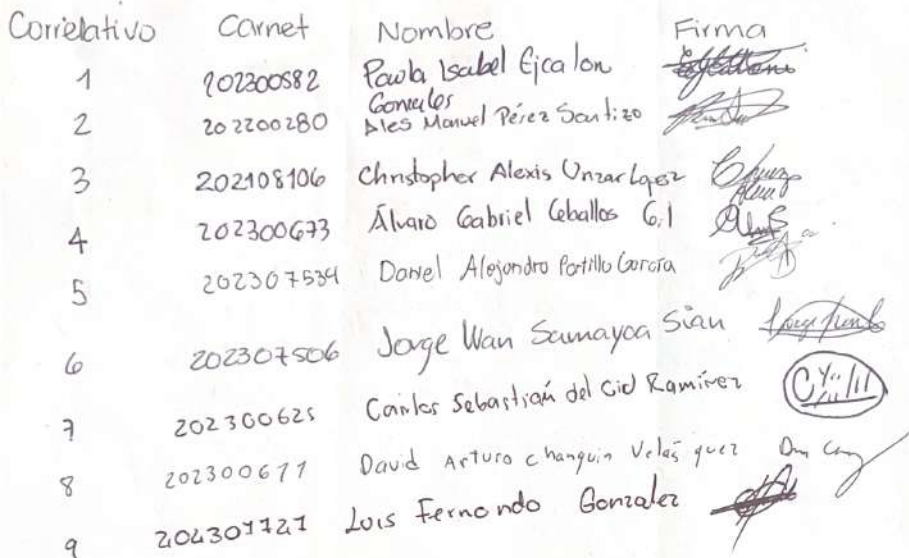 Correlativo Carnet Nombre Firma
1 202300582 Paola Isabel Ejcalon
Gonzales
2 202200280 Ales Manuel Pérez Santizo
3 202108106 Christopher Alexis Unzar Lopez
4 202300673 Álvaro Gabriel Ceballos G.
5 202307534 Daniel Alejandro Portillo García
6 202307506 Jorge Wan Samayoa Sian
7 202300625 Carlos Sebastián del Cid Ramírez
8 202300677 David Arturo Changuin Velásquez
9 202301721 Luis Fernando Gonzalez